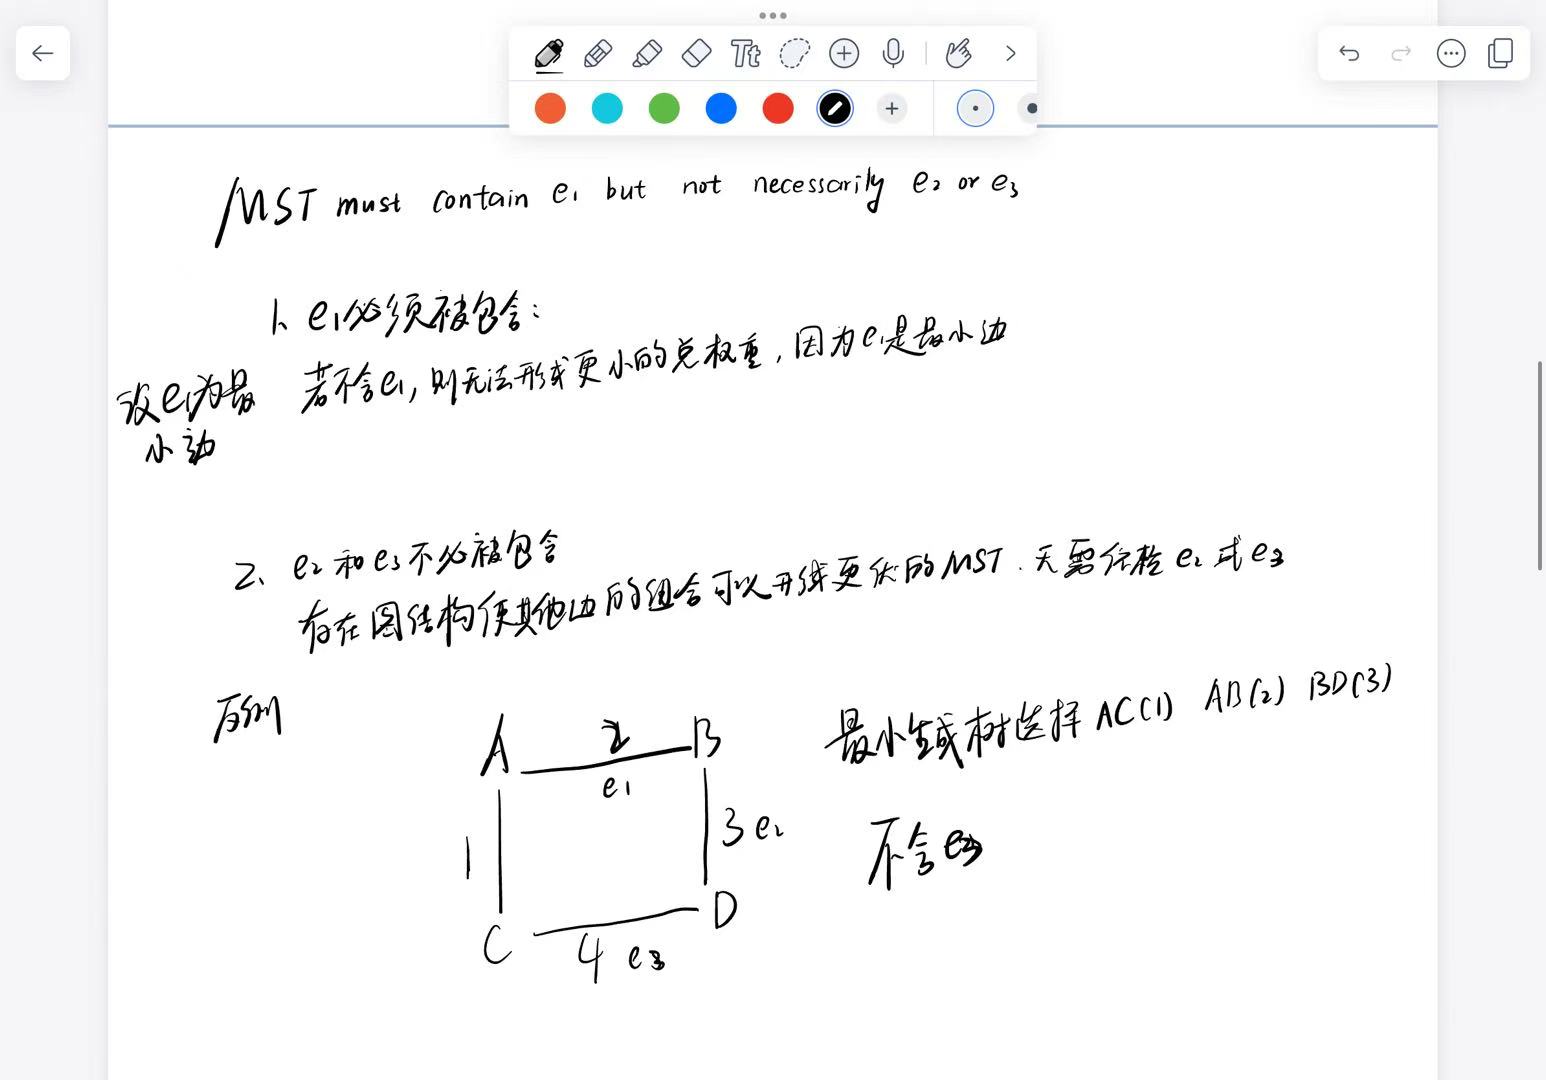 Tt
MST must contain e₁ but not necessarily e₂ or e₃
1、e₁必须被包含：
若不含e₁，则无法形成更小的总权重，因为e₁是最小边
设e₁为最
小边
2、e₂和e₃不必被包含
存在图结构使其他边的组合可以形成更优的MST．无需包含e₂或e₃
反例
A 2 B
e₁
1
3 e₂
C 4 e₃ D
最小生成树选择AC(1) AB(2) BD(3)
不含e₃